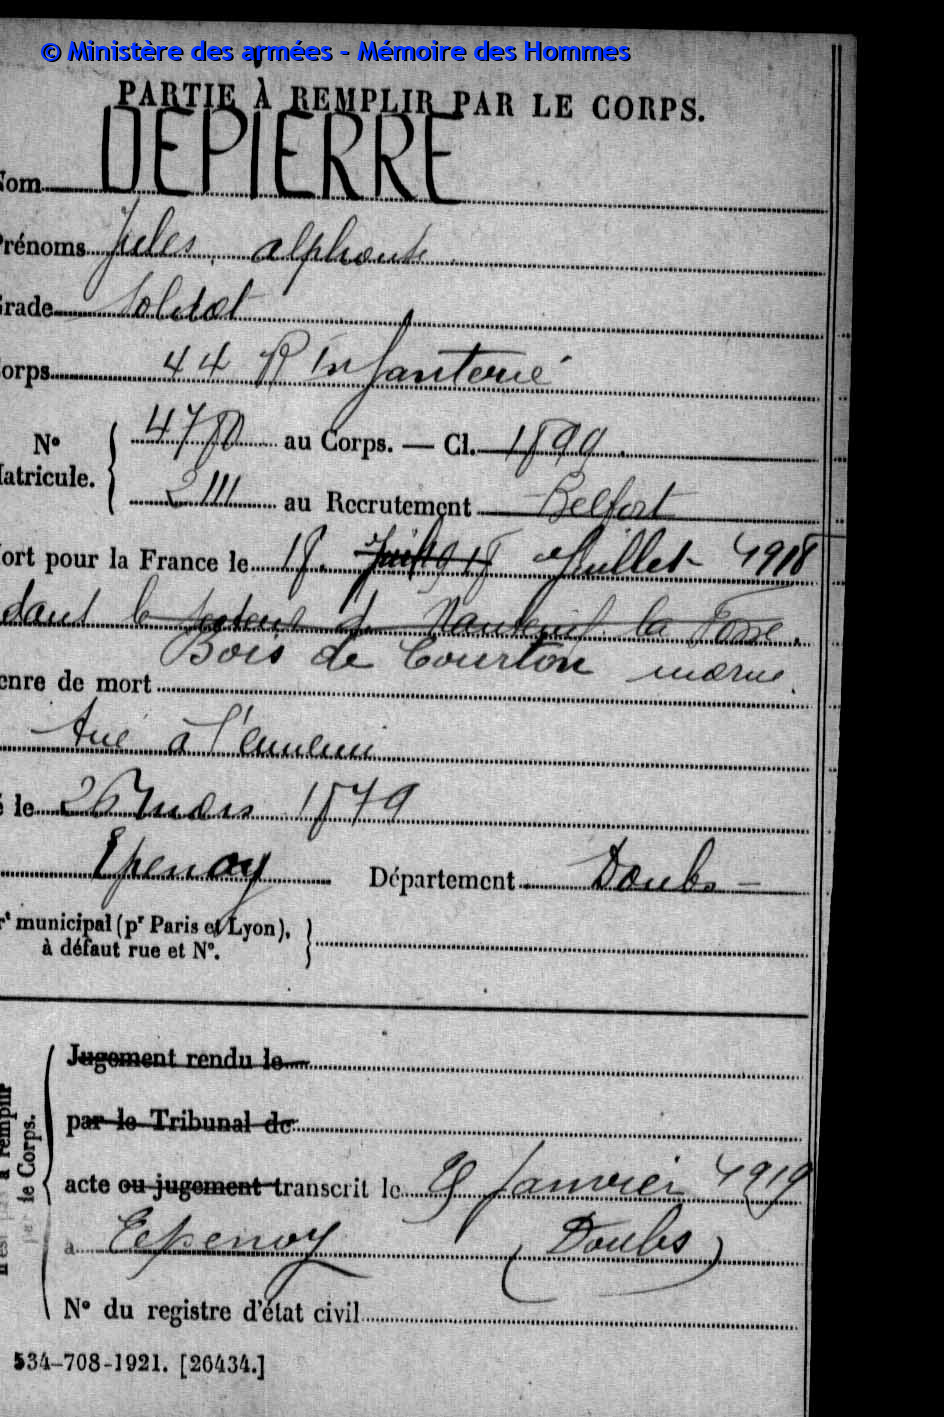 © Ministère des armées - Mémoire des Hommes
PARTIE À REMPLIR PAR LE CORPS.
Nom DEPIERRE
Prénoms Jules Alphonse
Grade Soldat
Corps 44 R Infanterie
N° Matricule. { 4780 au Corps. — Cl. 1899.
2111 au Recrutement Belfort
Mort pour la France le 18. Juil 1918 Juillet 1918
dans le secteur de Nanteuil la Fosse.
Bois de Courton marne.
Genre de mort
Tué à l'ennemi
Né le 26 mars 1879
Epenoy Département Doubs
Arr<sup>t</sup> municipal (p<sup>r</sup> Paris et Lyon),
à défaut rue et N°.
Jugement rendu le
par le Tribunal de
acte ou jugement transcrit le Janvier 1919
à Epenoy (Doubs)
N° du registre d'état civil
à remplir
le Corps.
534-708-1921. [26434.]